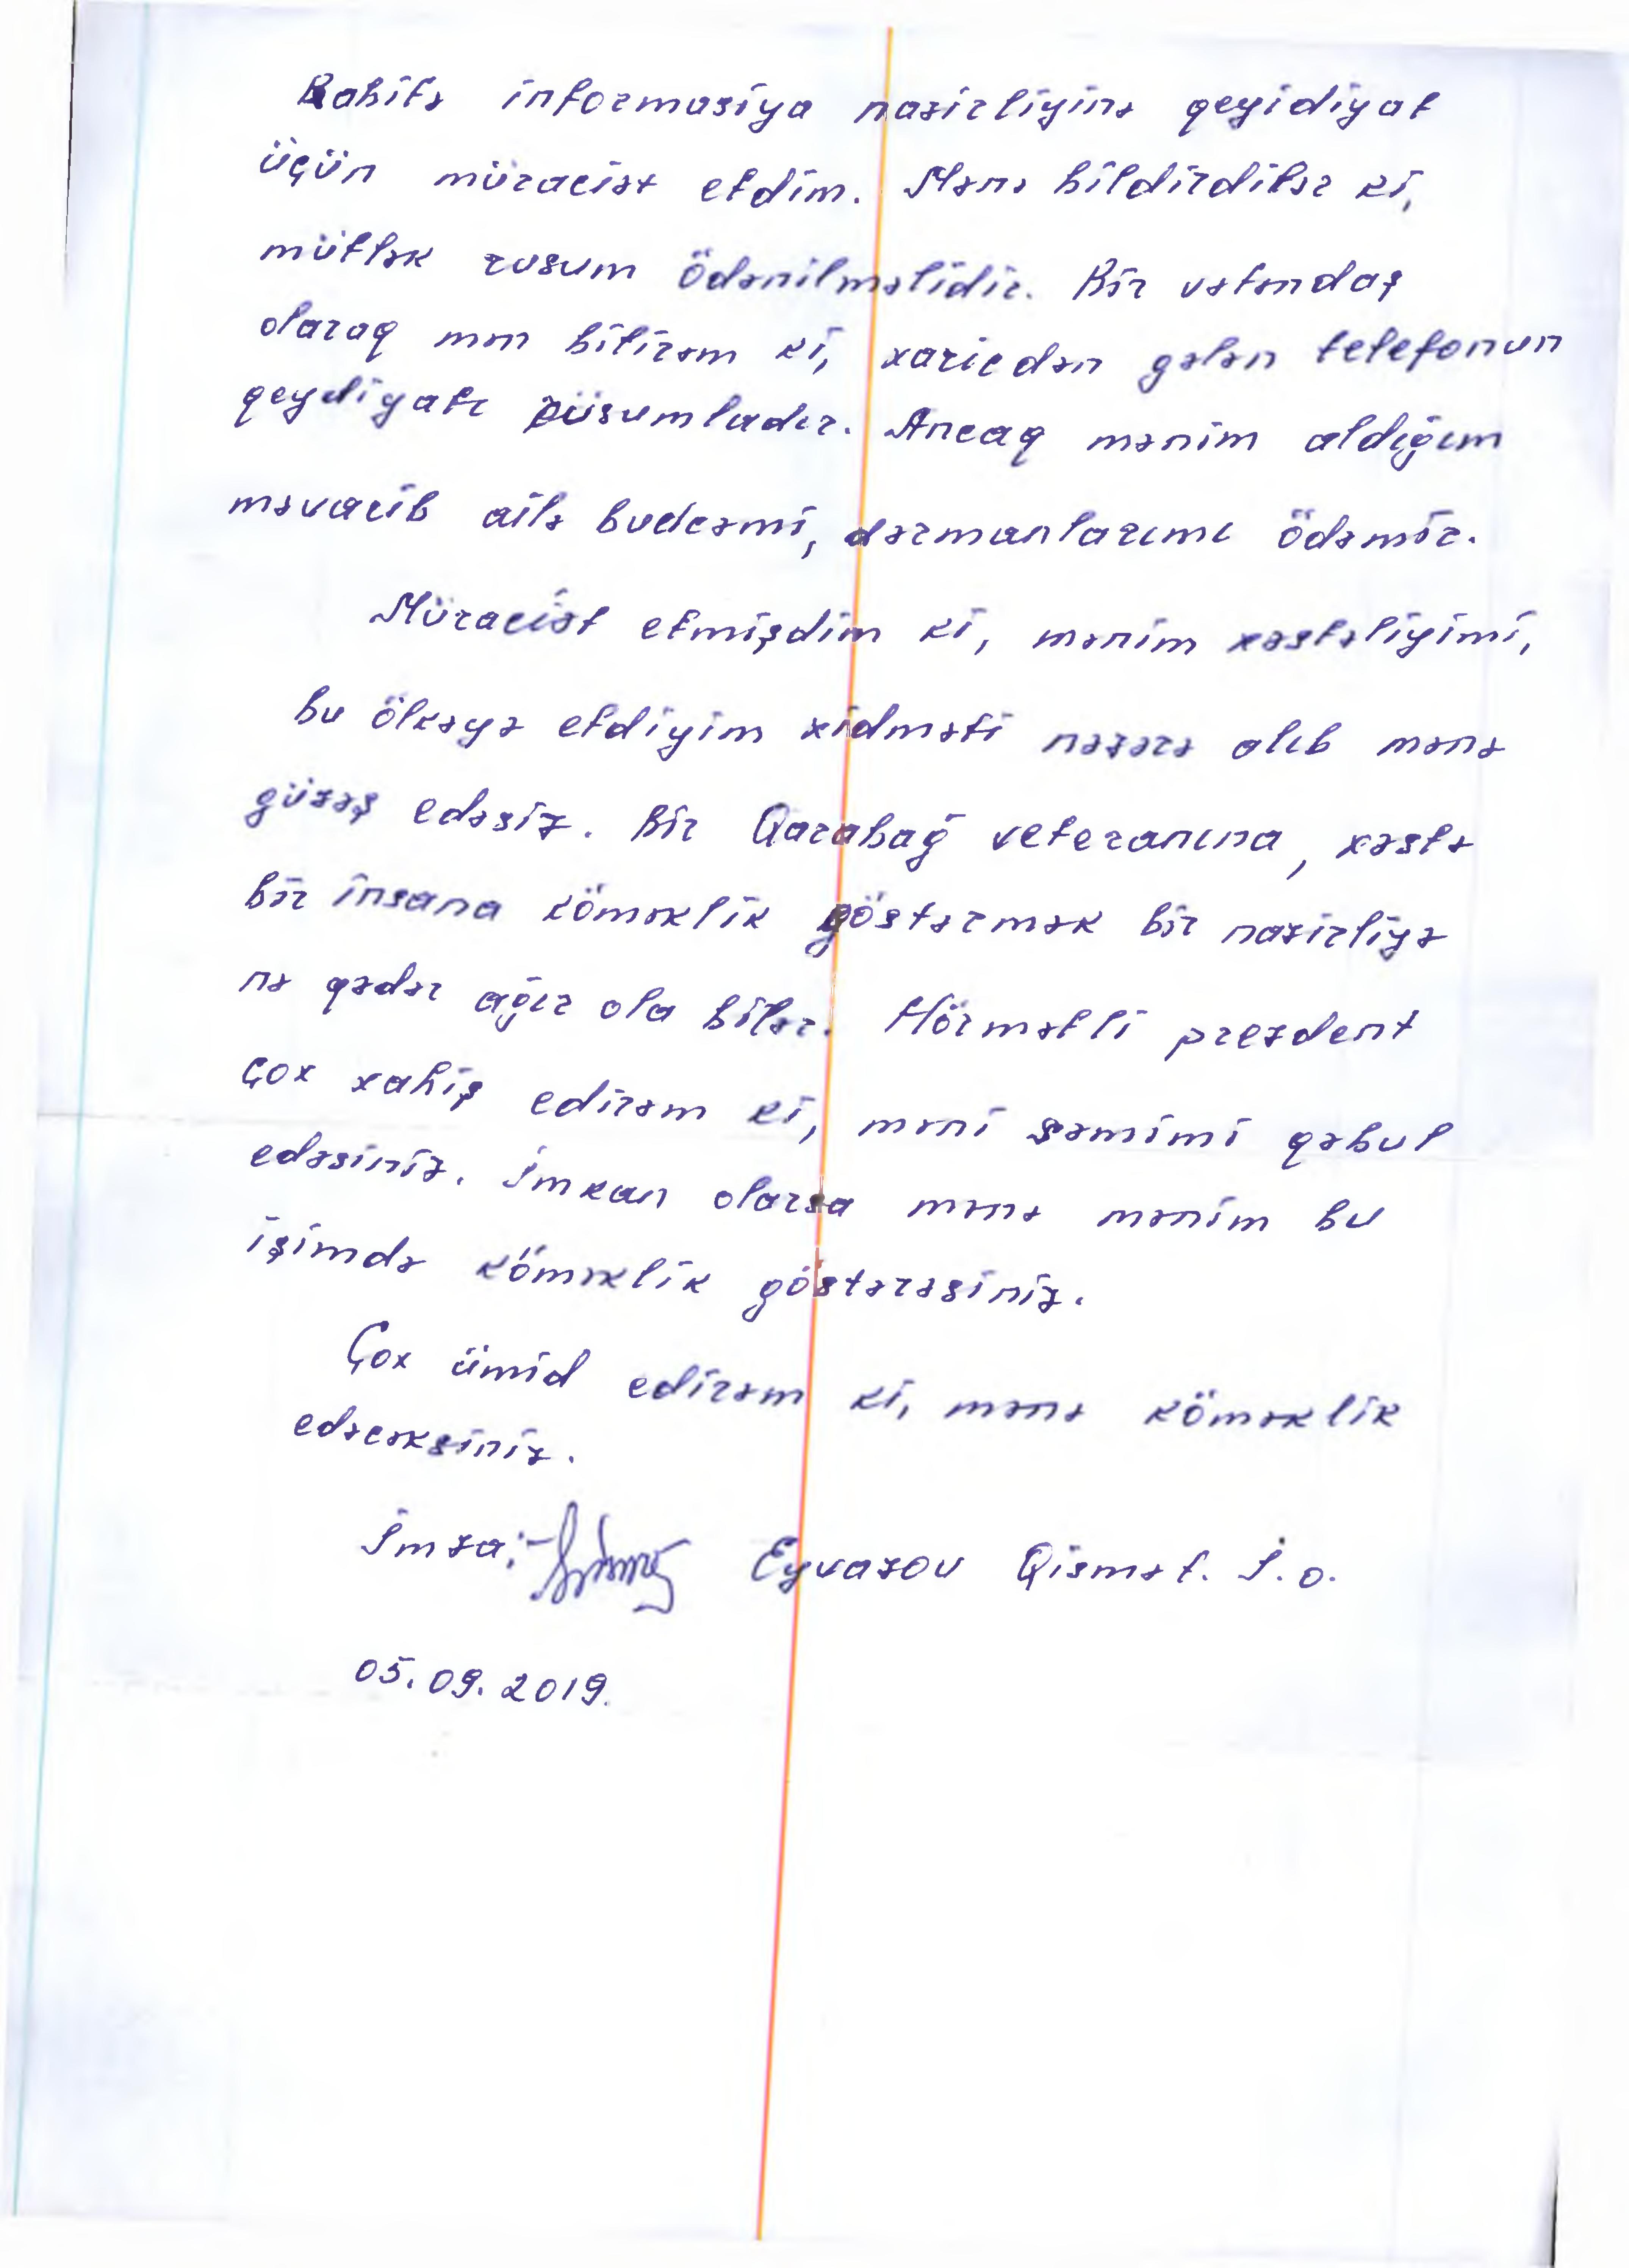 Rabitə informasiya nazirliyinə qeyidiyat
üçün müraciət etdim. Mənə bildirdilər ki,
mütlək rusum ödənilməlidir. Bir vətəndaş
olaraq mən bilirəm ki, xaricdən gələn telefonun
qeydiyatı rüsumludır. Ancaq mənim aldığım
məvacib ailə budcəmi, dərmanlarımı ödəmir.
Müraciət etmişdim ki, mənim xəstəliyimi,
bu ölkəyə etdiyim xidməti nəzərə alıb mənə
güzəş edəsiz. Bir Qarabağ veteranına, xəstə
bir insana köməklik göstərmək bir nazirliyə
nə qədər ağır ola bilər. Hörmətli prezdent
çox xahiş edirəm ki, məni səmimi qəbul
edəsiniz. İmkan olarsa mənə mənim bu
işimdə köməklik göstərəsiniz.
Çox ümid edirəm ki, mənə köməklik
edəcəksiniz.
İmza: Eyvazov Qismət. İ.o.
05.09.2019.